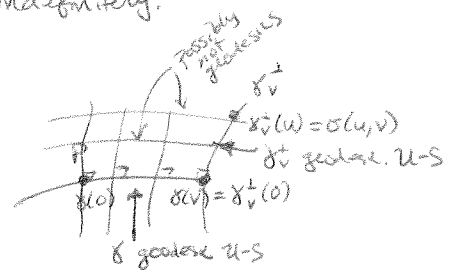 indefinitely.
Possibly
not
geodesics
γ_v^⊥
γ_v^⊥(u) = σ(u,v)
γ_v^⊥ geodesic U-S
γ(0)
γ(v) = γ_v^⊥(0)
γ geodesic U-S